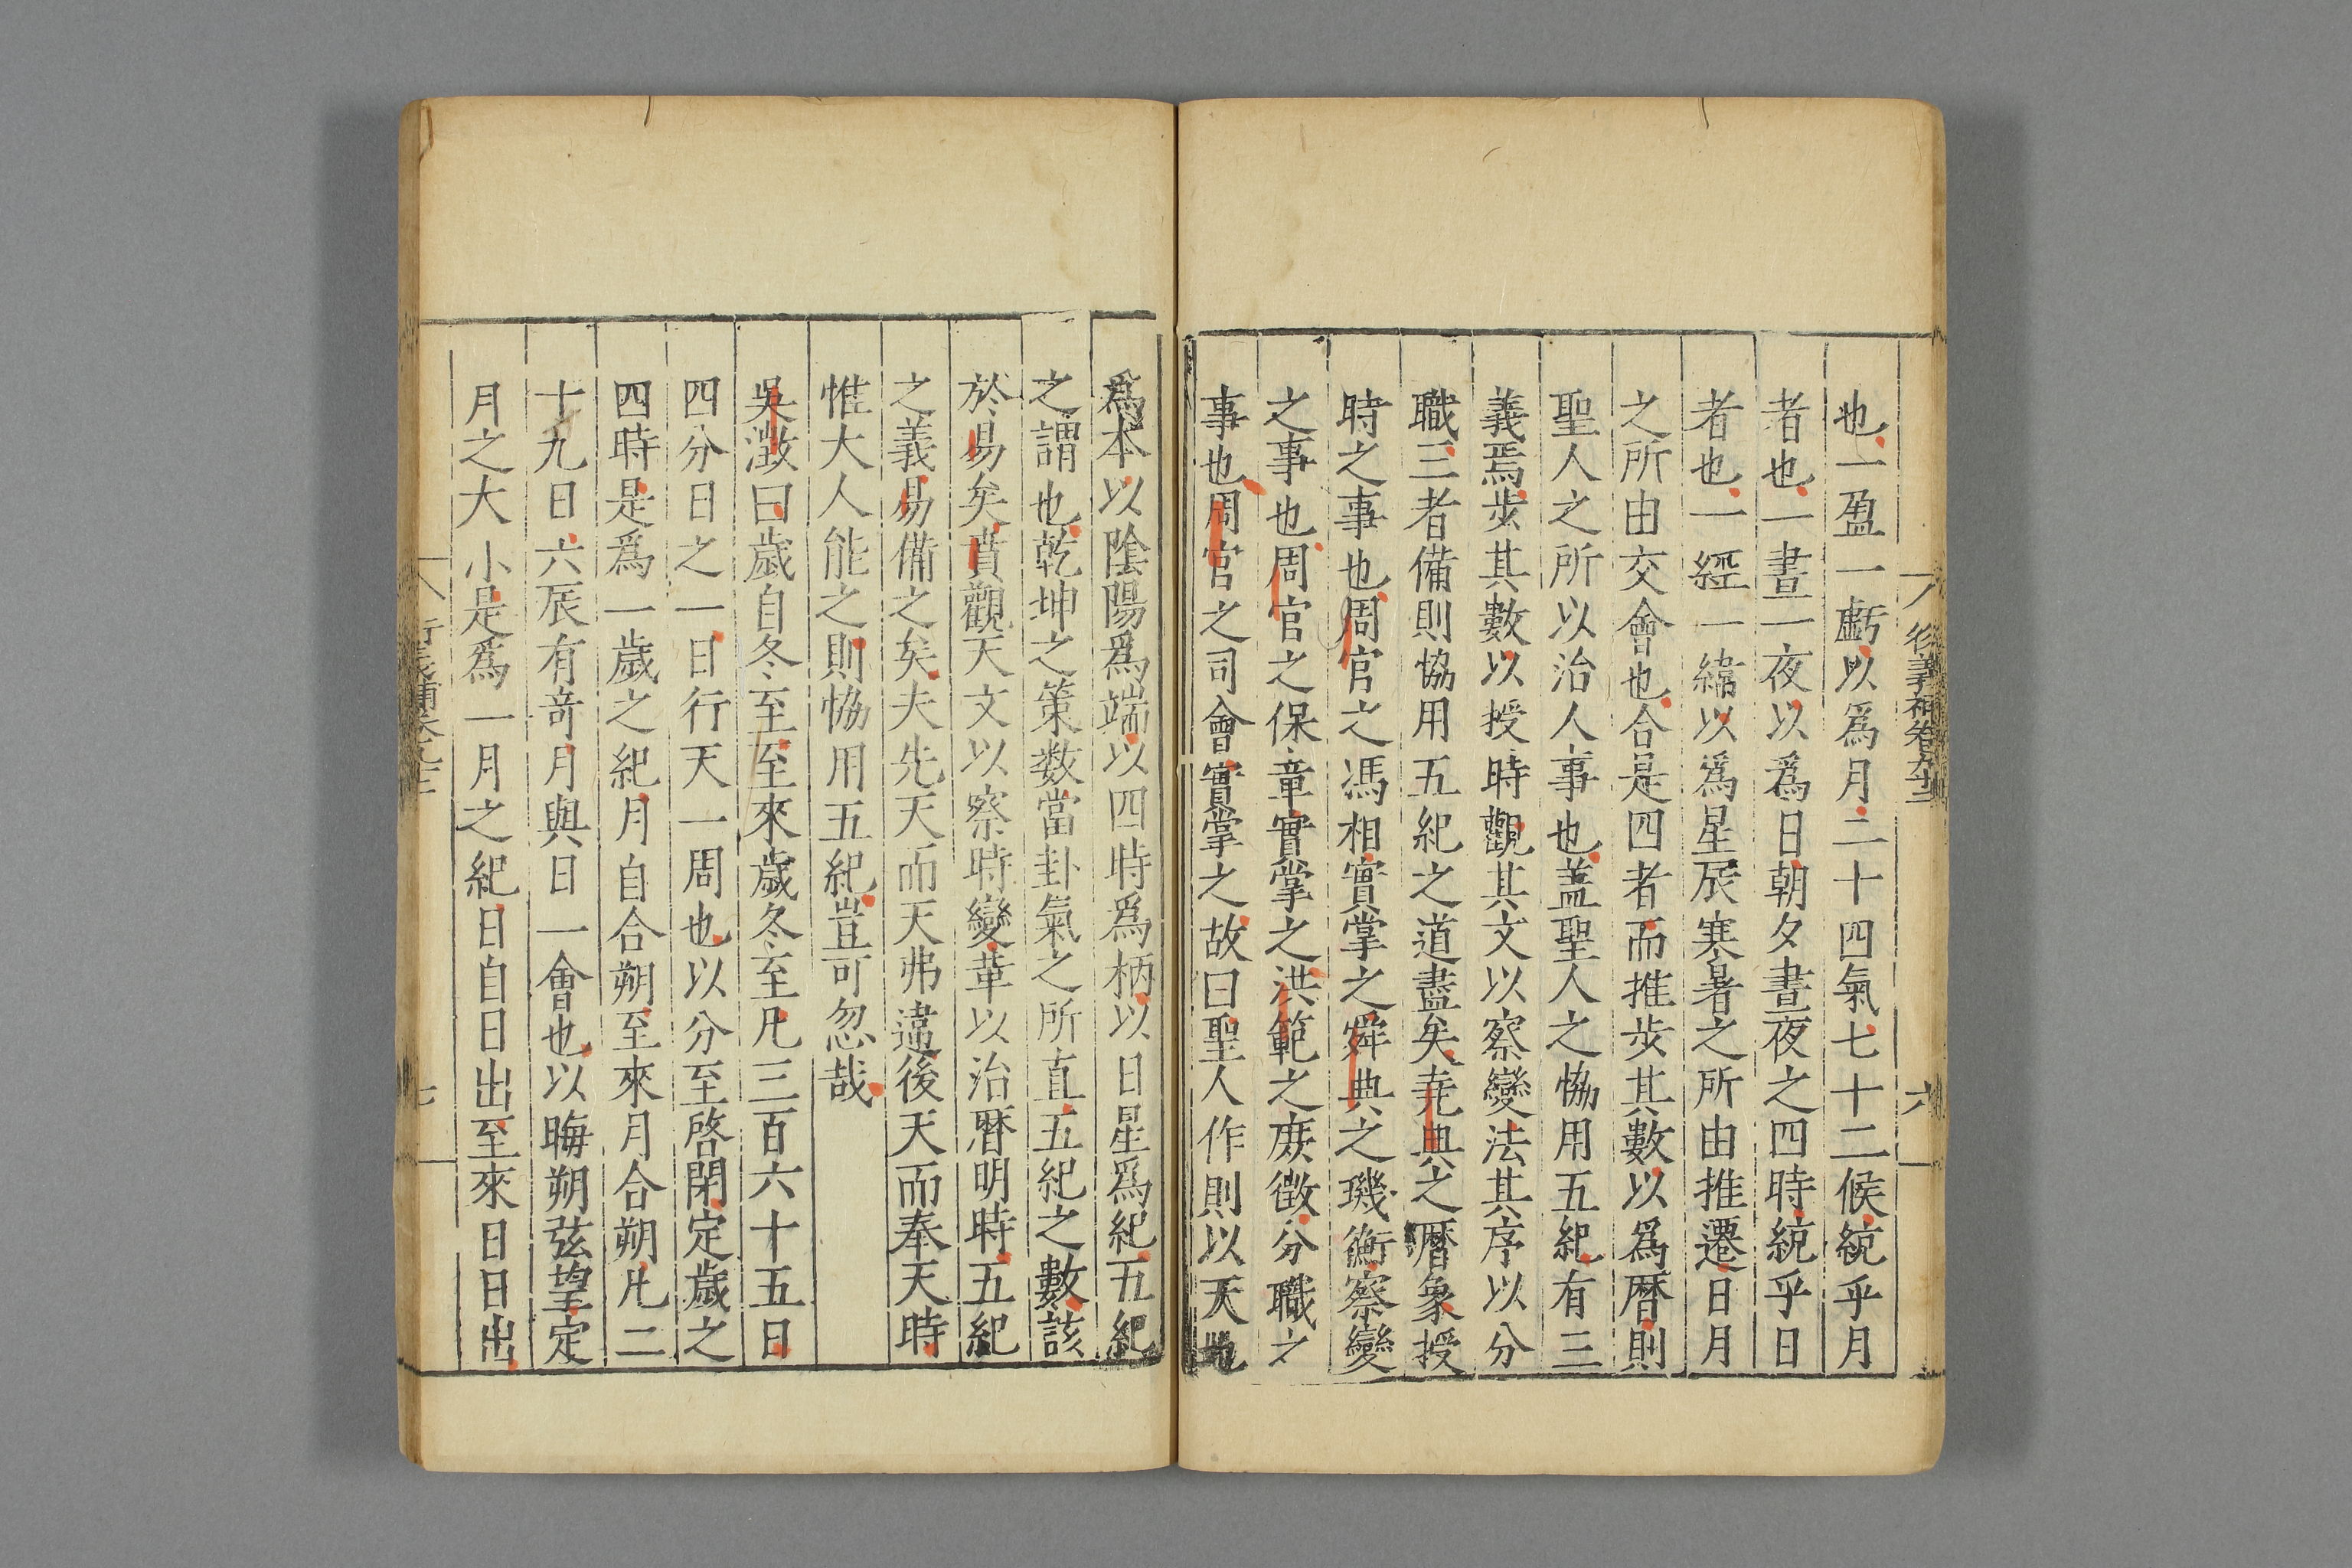 衍義補卷九十二
六
也一盈一虧以爲月二十四氣七十二候統乎月
者也一晝一夜以爲日朝夕晝夜之四時統乎日
者也一經一緯以爲星辰寒暑之所由推遷日月
之所由交會也合是四者而推步其數以爲曆則
聖人之所以治人事也蓋聖人之恊用五紀有三
義焉步其數以授時觀其文以察變法其序以分
職三者備則恊用五紀之道盡矣堯典之曆象授
時之事也周官之馮相實掌之舜典之璣衡察變
之事也周官之保章實掌之洪範之庶徵分職之
事也周官之司會實掌之故曰聖人作則以天地
爲本以陰陽爲端以四時爲柄以日星爲紀五紀
之謂也乾坤之策数當卦氣之所直五紀之數該
於易矣賁觀天文以察時變革以治曆明時五紀
之義易備之矣夫先天而天弗違後天而奉天時
惟大人能之則恊用五紀豈可忽哉
吳澂曰歲自冬至至來歲冬至凡三百六十五日
四分日之一日行天一周也以分至啓閉定歲之
四時是爲一歲之紀月自合朔至來月合朔凡二
十九日六辰有竒月與日一會也以晦朔弦望定
月之大小是爲一月之紀日自日出至來日日出
七